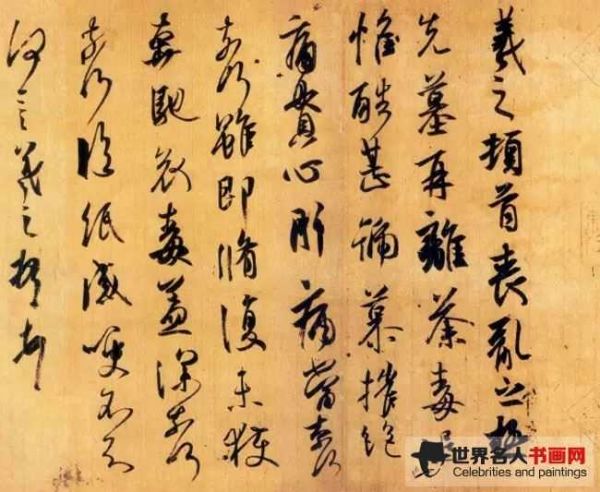 羲之頓首喪亂之極
先墓再離荼毒追
惟酷甚號慕摧絶
痛貫心肝痛當奈何
奈何雖即脩復未獲
奔馳哀毒益深奈何
奈何臨紙感哽不知
何言羲之頓首頓首
世界名人书画网
Celebrities and paintings